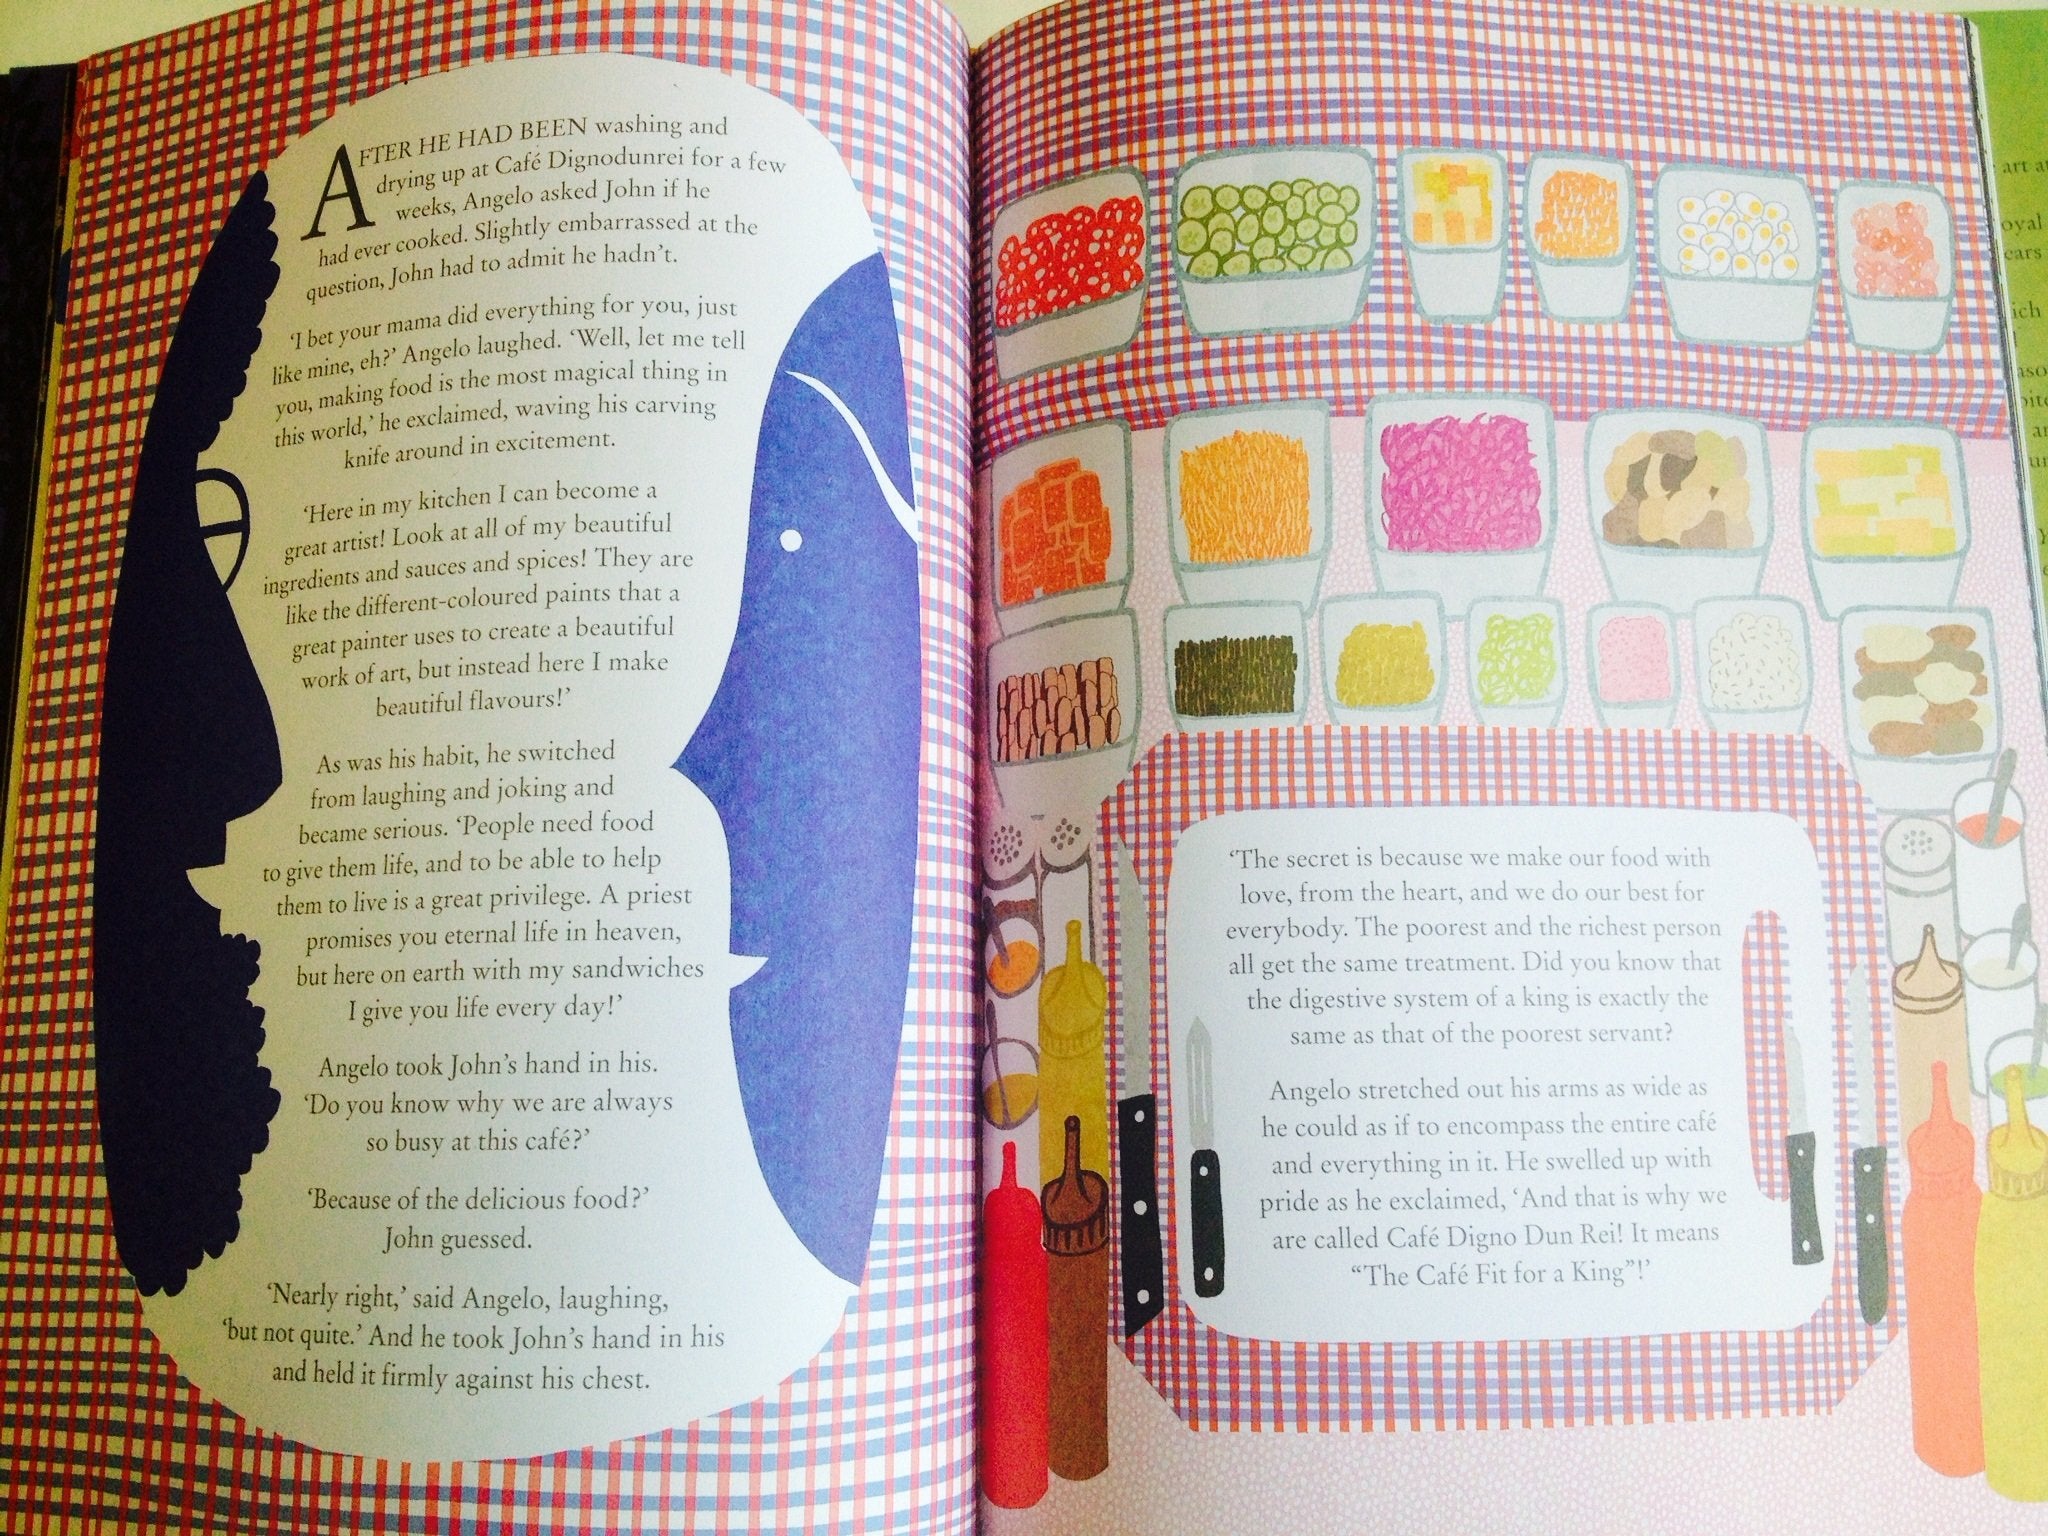 AFTER HE HAD BEEN washing and
drying up at Café Dignodunrei for a few
weeks, Angelo asked John if he
had ever cooked. Slightly embarrassed at the
question, John had to admit he hadn't.
‘I bet your mama did everything for you, just
like mine, eh?’ Angelo laughed. ‘Well, let me tell
you, making food is the most magical thing in
this world,’ he exclaimed, waving his carving
knife around in excitement.
‘Here in my kitchen I can become a
great artist! Look at all of my beautiful
ingredients and sauces and spices! They are
like the different-coloured paints that a
great painter uses to create a beautiful
work of art, but instead here I make
beautiful flavours!’
As was his habit, he switched
from laughing and joking and
became serious. ‘People need food
to give them life, and to be able to help
them to live is a great privilege. A priest
promises you eternal life in heaven,
but here on earth with my sandwiches
I give you life every day!’
Angelo took John’s hand in his.
‘Do you know why we are always
so busy at this café?’
‘Because of the delicious food?’
John guessed.
‘Nearly right,’ said Angelo, laughing,
‘but not quite.’ And he took John’s hand in his
and held it firmly against his chest.
‘The secret is because we make our food with
love, from the heart, and we do our best for
everybody. The poorest and the richest person
all get the same treatment. Did you know that
the digestive system of a king is exactly the
same as that of the poorest servant?
Angelo stretched out his arms as wide as
he could as if to encompass the entire café
and everything in it. He swelled up with
pride as he exclaimed, ‘And that is why we
are called Café Digno Dun Rei! It means
“The Café Fit for a King”!’
art